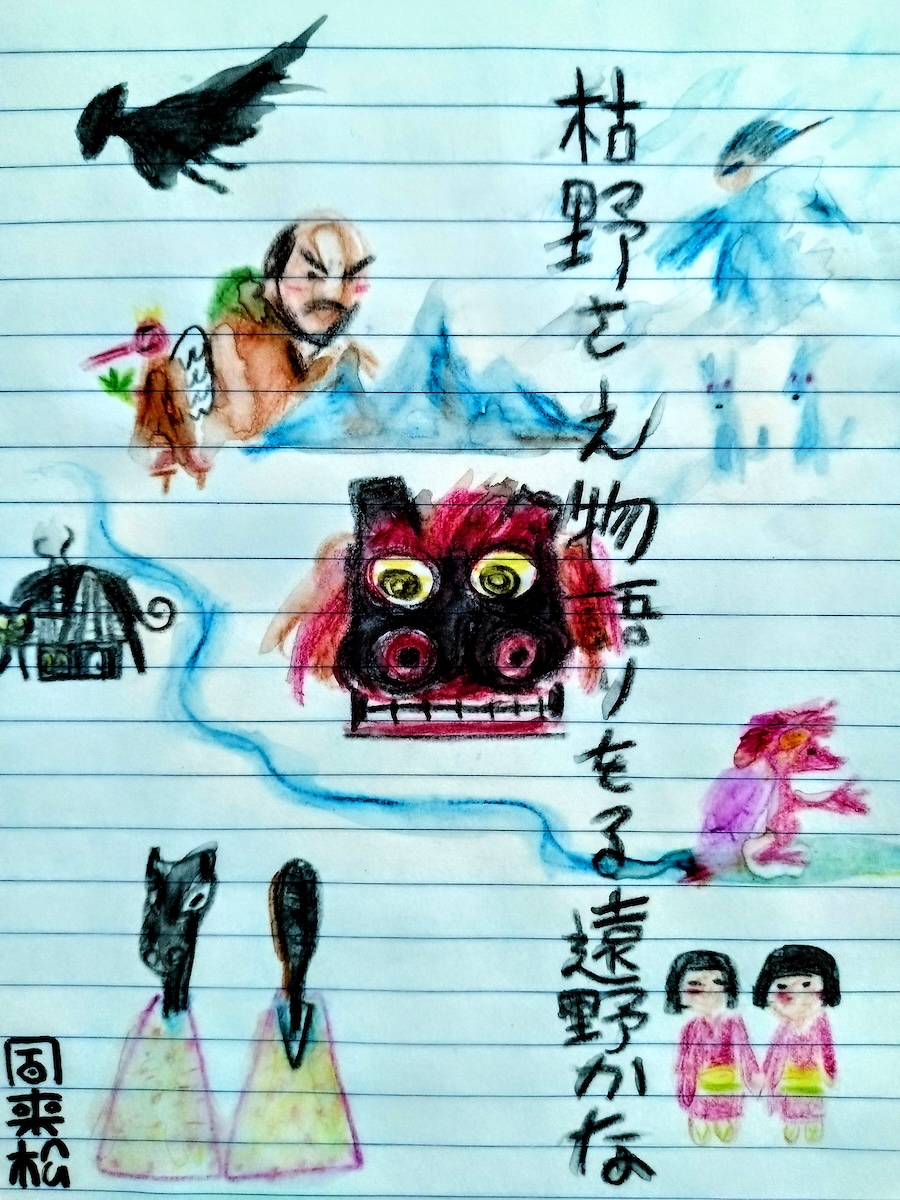 枯野さえ物語りをる遠野かな
周来松